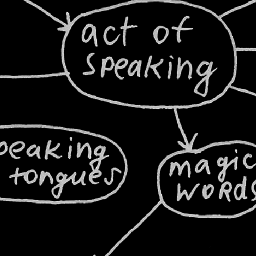 act of
speaking
peaking
tongues
magic
words